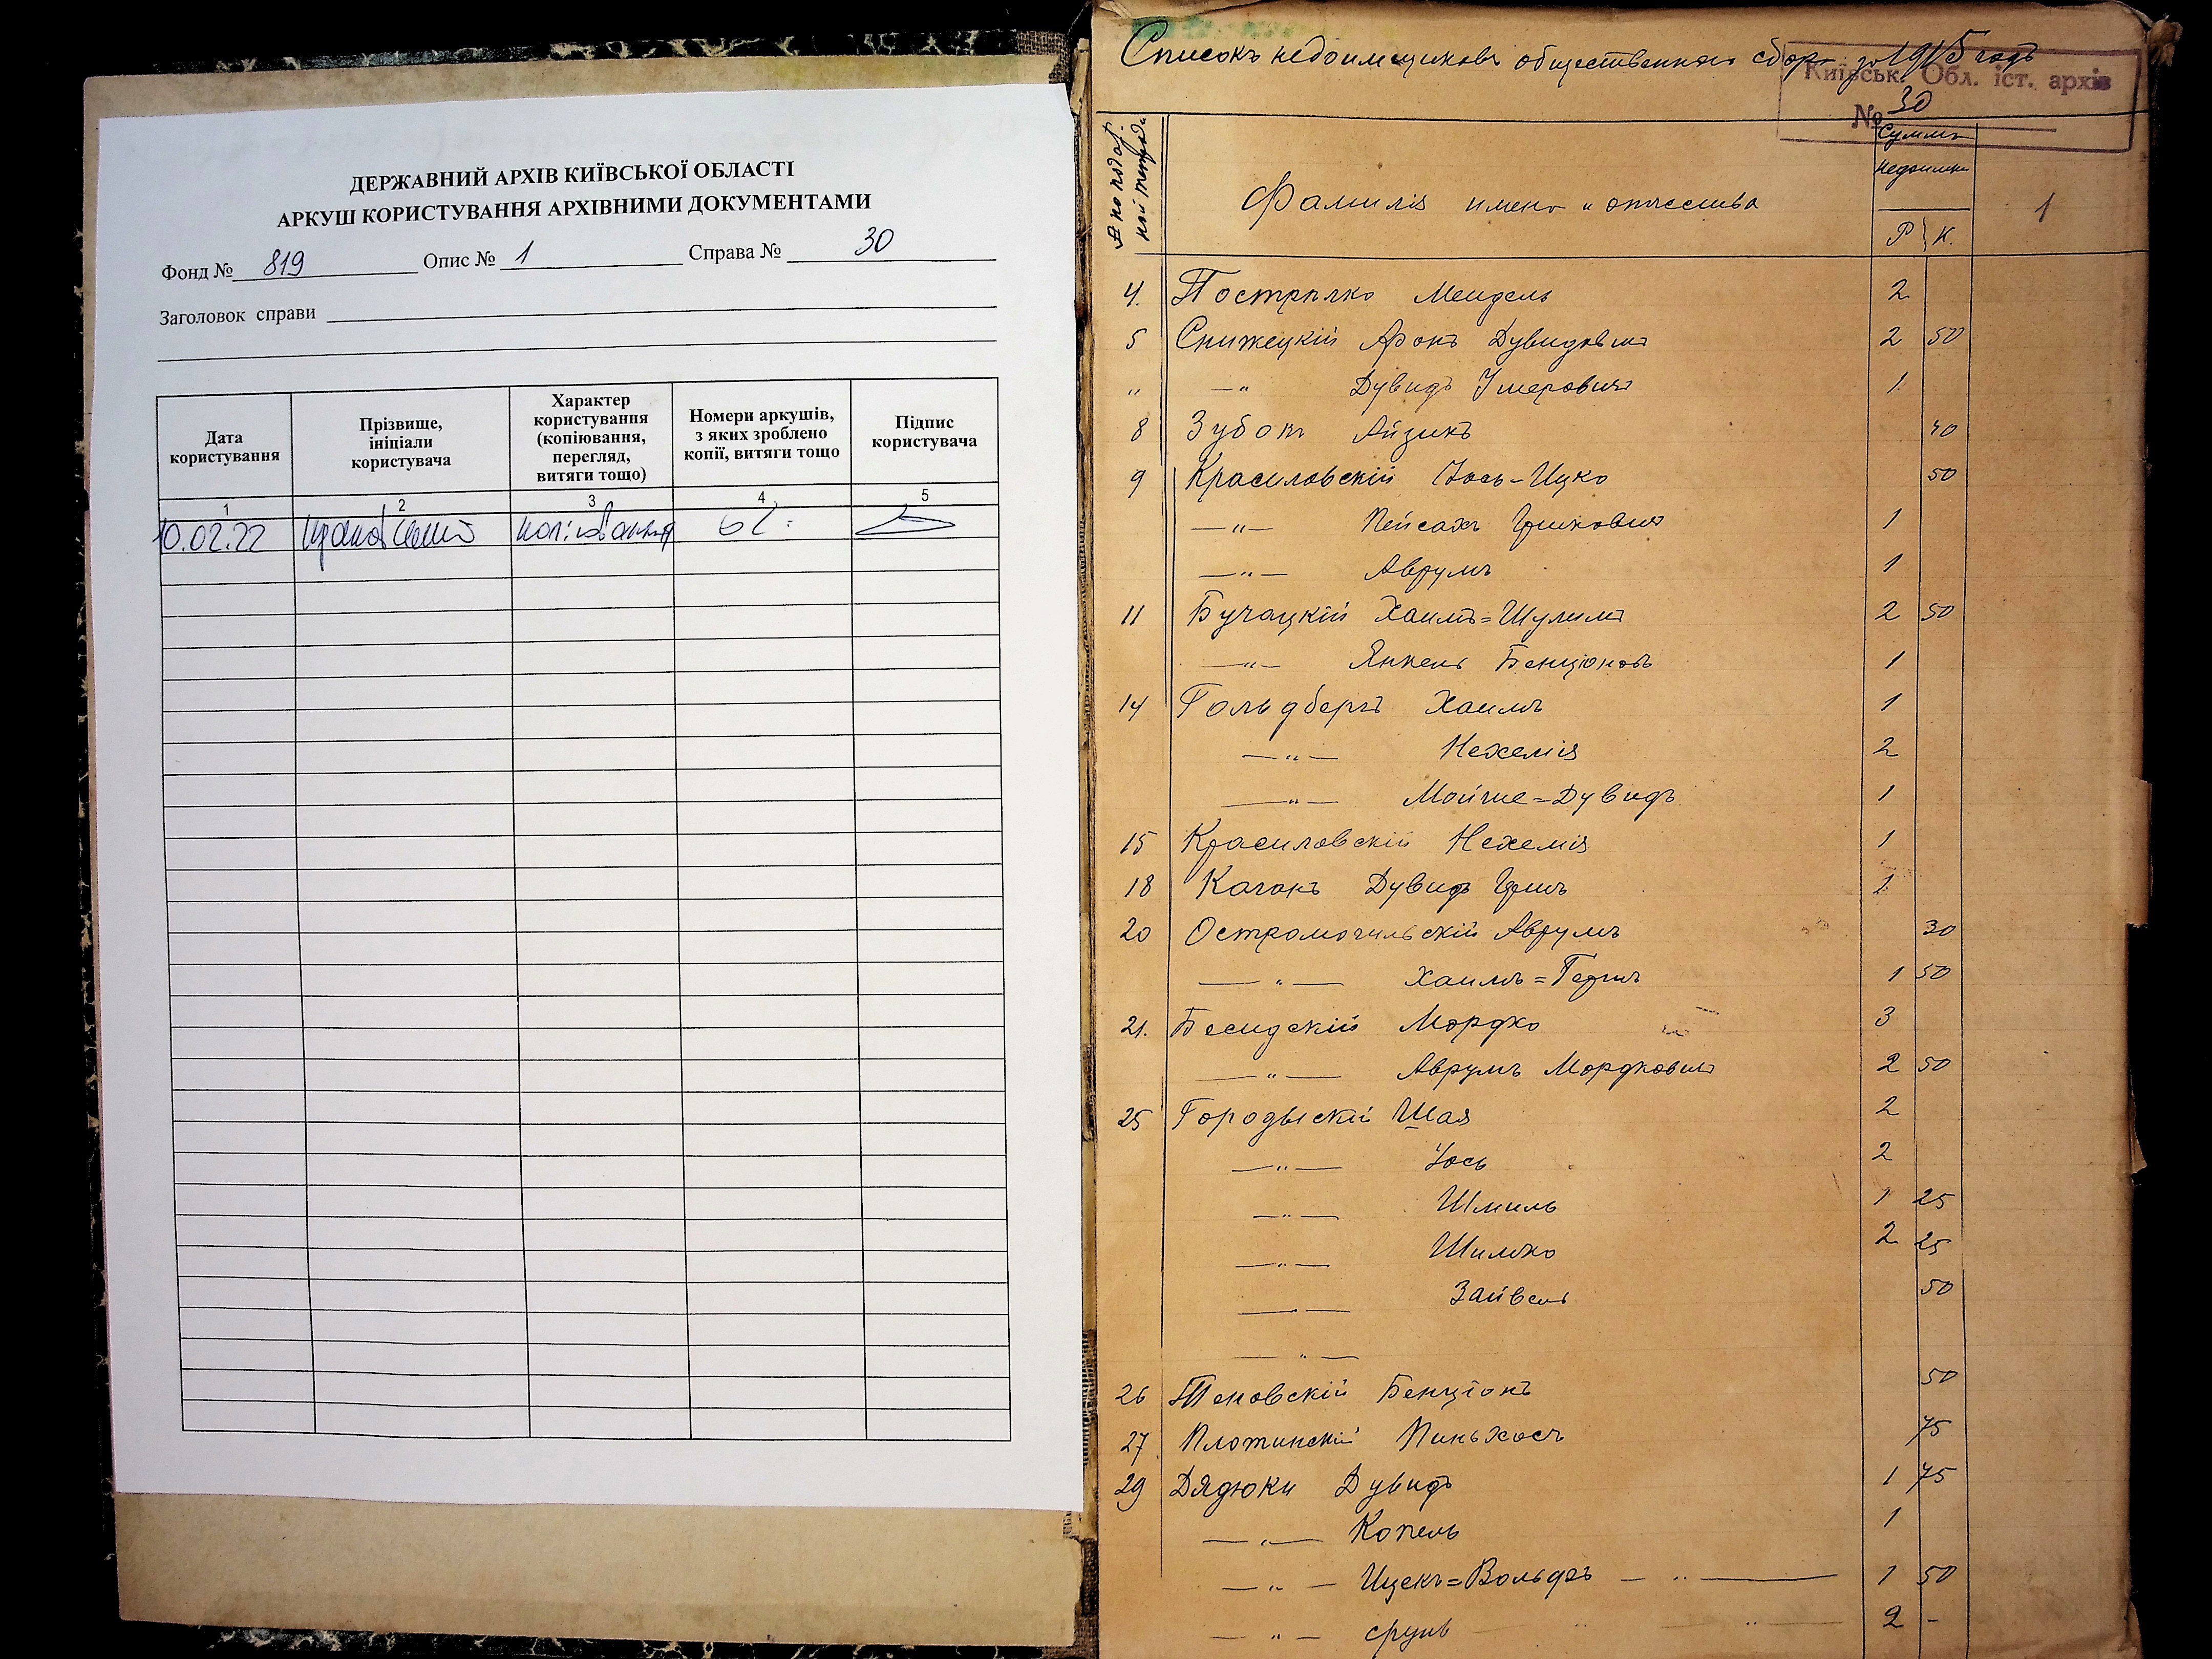 ДЕРЖАВНИЙ АРХІВ КИЇВСЬКОЇ ОБЛАСТІ
АРКУШ КОРИСТУВАННЯ АРХІВНИМИ ДОКУМЕНТАМИ
Фонд № 819 Опис № 1 Справа № 30
Заголовок справи
Дата користування
Прізвище, ініціали користувача
Характер користування (копіювання, перегляд, витяги тощо)
Номери аркушів, з яких зроблено копії, витяги тощо
Підпис користувача
1 2 3 4 5
10.02.22 копіювання
Списокъ недоимщиковъ общественнаго сбора за 1915 годъ
Київськ. Обл. іст. архів
№ 30
№ по подат. ной тетради
Фамилія имена и отчества
Сумма недоимки
Р К.
1
4. Пострѣлко Мендель 2
5 Снижецкій Аронъ Дувидовичъ 2 50
„ —„ Дувидъ Умеровичъ 1
8 Зубокъ Айзикъ 40
9 Красиловскій Іось-Ицко 50
—„— Пейсахъ Гершковичъ 1
—„— Аврумъ 1
11 Бучацкій Хаимъ=Шулимъ 2 50
—„— Янкель Бенціоновъ 1
14 Гольдбергъ Хаимъ 1
—„— Нехемія 2
—„— Мойше=Дувидъ 1
15 Красиловскій Нехемія 1
18 Каганъ Дувидъ Гершъ 1
20 Остромогильскій Аврумъ 30
—„— Хаимъ=Гершъ 1 50
21. Бесидскій Мордко 3
—„— Аврумъ Мордковичъ 2 50
25 Городыскій Шая 2
—„— Іось 2
—„— Шмиль 1 25
—„— Шимко 2 25
—„— Зайвель 50
—„—
26 Теновскій Бенціонъ 50
27 Плотинскій Пиньхосъ 75
29 Дядюки Дувидъ 1 75
—„— Копель 1
—„— Ицекъ=Вольфъ — „ — 1 50
—„— Сруль „ 2 -